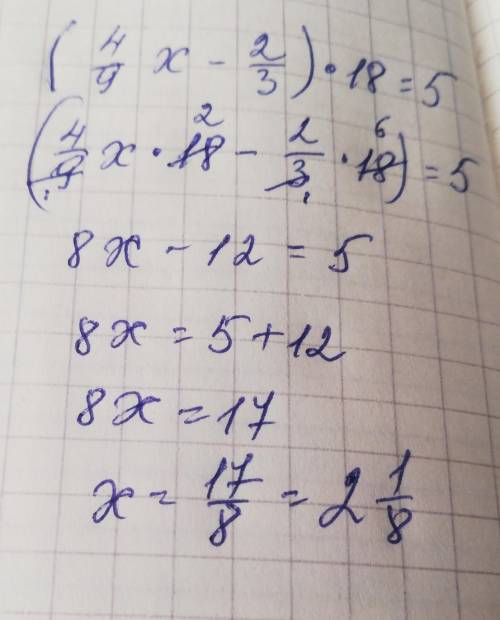 ( 4/9 x - 2/3 ) • 18 = 5
( 4/9 x • 18 2 - 2/3 • 18 6 ) = 5
8x - 12 = 5
8x = 5 + 12
8x = 17
x = 17/8 = 2 1/8